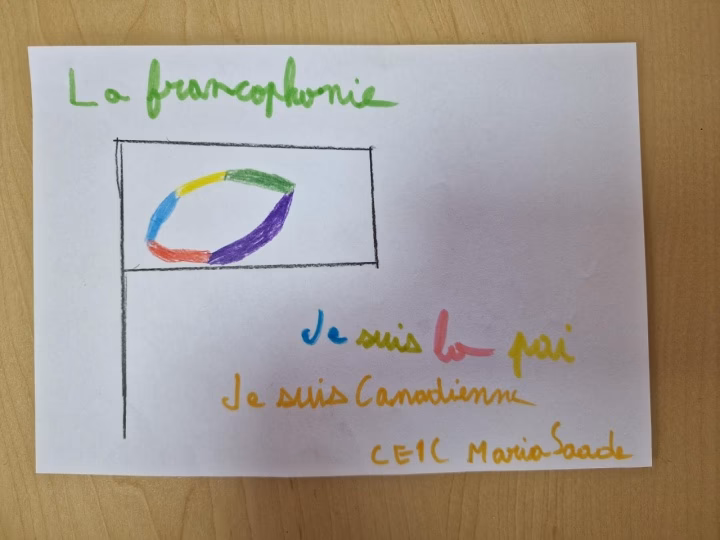 La francophonie
Je suis la pai
Je suis Canadienne
CE1C Maria Saade